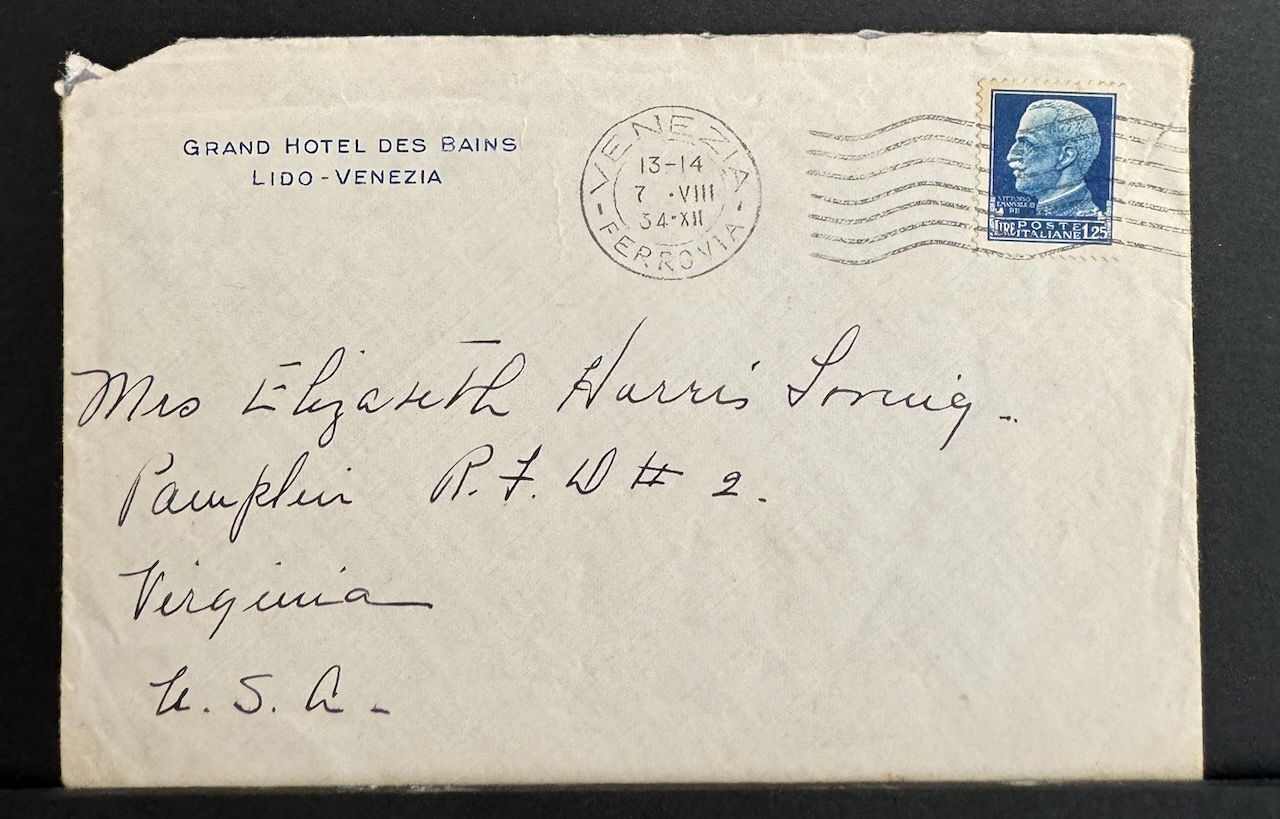 GRAND HOTEL DES BAINS
LIDO-VENEZIA
VENEZIA
13-14
7 ·VIII
34·XII
FERROVIA
VITTORIO
EMANVELE III
RE
LIRE POSTE ITALIANE 1,25
Mrs Elizabeth Harris Loring.
Pamplin R.F.D # 2.
Virginia
U.S.A.